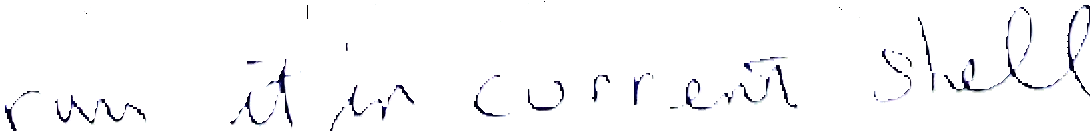 run it in current shell